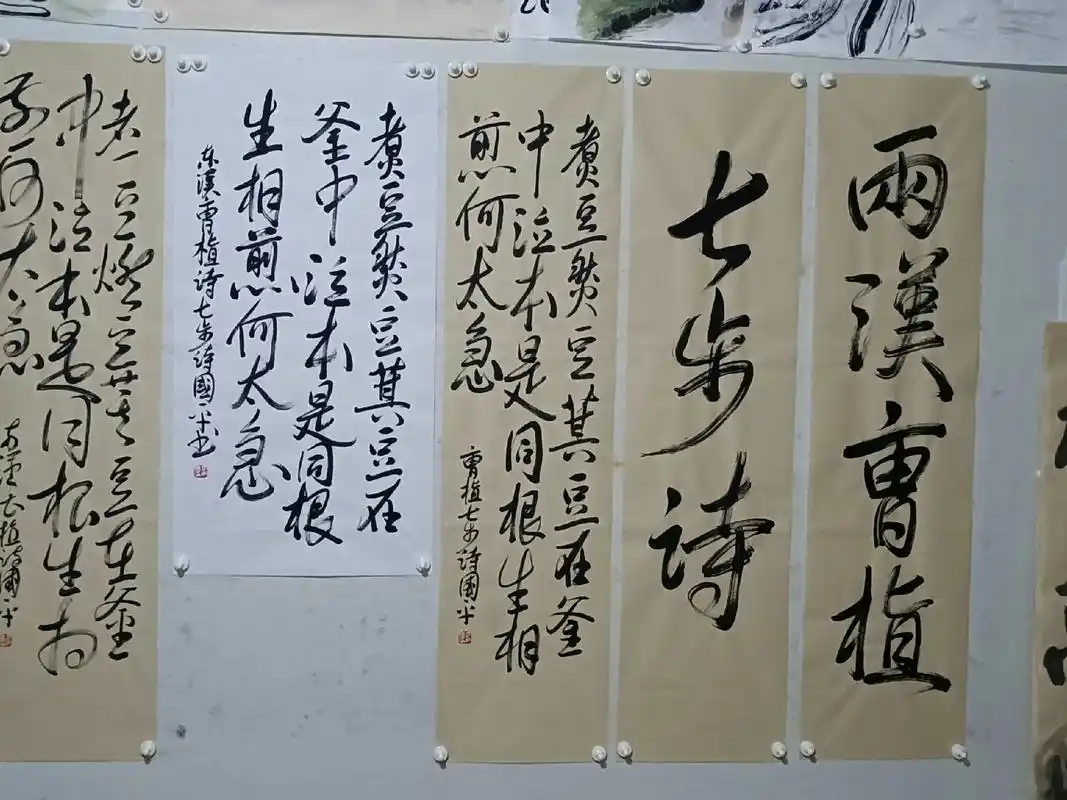 兩漢曹植
七步诗
煮豆燃豆萁豆在釜
中泣本是同根生相
煎何太急
曹植七步詩國平
煮豆燃豆萁豆在
釜中泣本是同根
生相煎何太急
东漢曹植诗七步詩國平书
煮豆燃豆萁豆在釜
中泣本是同根生相
煎何太急